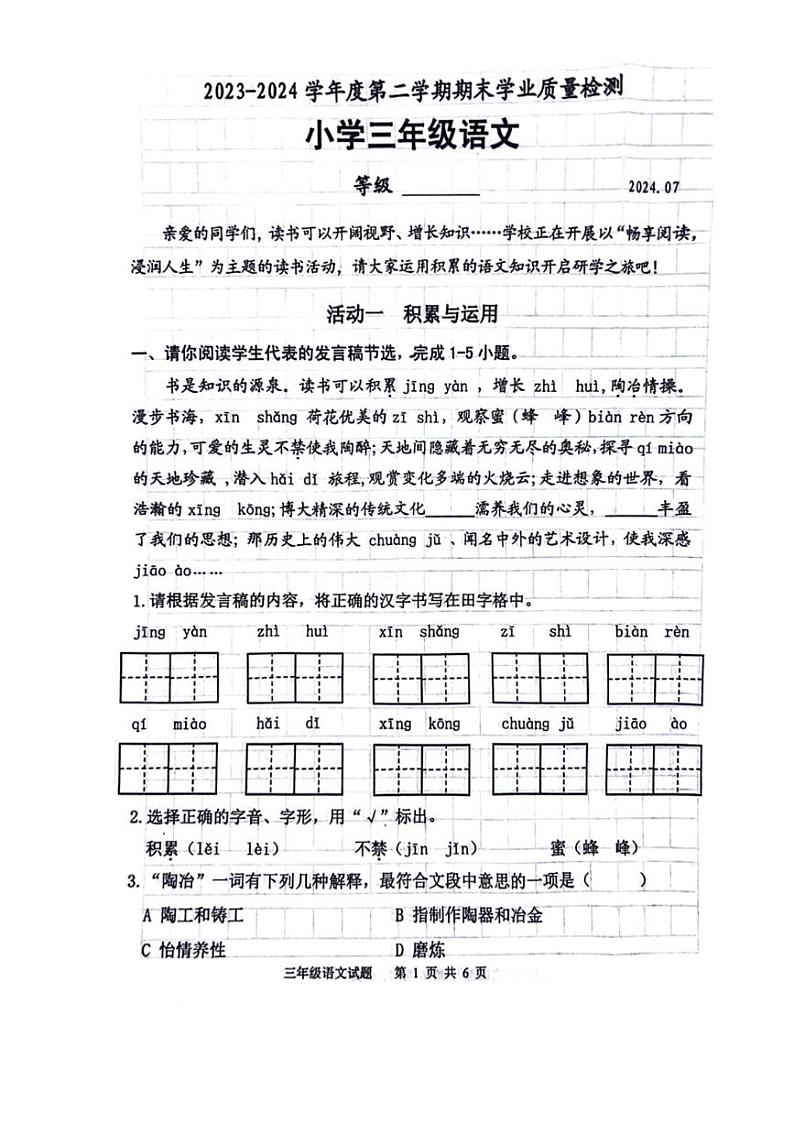 2023-2024 学年度第二学期期末学业质量检测
小学三年级语文
等级 ________ 2024.07
亲爱的同学们，读书可以开阔视野、增长知识……学校正在开展以“畅享阅读，
浸润人生”为主题的读书活动，请大家运用积累的语文知识开启研学之旅吧！
活动一 积累与运用
一、请你阅读学生代表的发言稿节选，完成1-5小题。
书是知识的源泉。读书可以积累 jīng yàn ，增长 zhì huì，陶冶情操。
漫步书海，xīn shǎng 荷花优美的 zī shì，观察蜜（蜂 峰）biàn rèn 方向
的能力，可爱的生灵不禁使我陶醉；天地间隐藏着无穷无尽的奥秘，探寻 qí miào
的天地珍藏 ，潜入 hǎi dǐ 旅程，观赏变化多端的火烧云；走进想象的世界，看
浩瀚的 xīng kōng；博大精深的传统文化______濡养我们的心灵，______丰盈
了我们的思想；那历史上的伟大 chuàng jǔ 、闻名中外的艺术设计，使我深感
jiāo ào……
1.请根据发言稿的内容，将正确的汉字书写在田字格中。
jīng yàn zhì huì xīn shǎng zī shì biàn rèn
qí miào hǎi dǐ xīng kōng chuàng jǔ jiāo ào
2.选择正确的字音、字形，用“√”标出。
积累（lěi lèi） 不禁（jīn jǐn） 蜜（蜂 峰）
3.“陶冶”一词有下列几种解释，最符合文段中意思的一项是（ ）
A 陶工和铸工 B 指制作陶器和冶金
C 怡情养性 D 磨炼
三年级语文试题 第 1 页 共 6 页